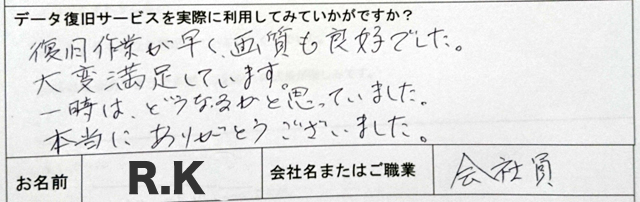 データ復旧サービスを実際に利用してみていかがですか？
復旧作業が早く、画質も良好でした。
大変満足しています。
一時は、どうなるかと思っていました。
本当にありがとうございました。
お名前 R.K 会社名またはご職業 会社員